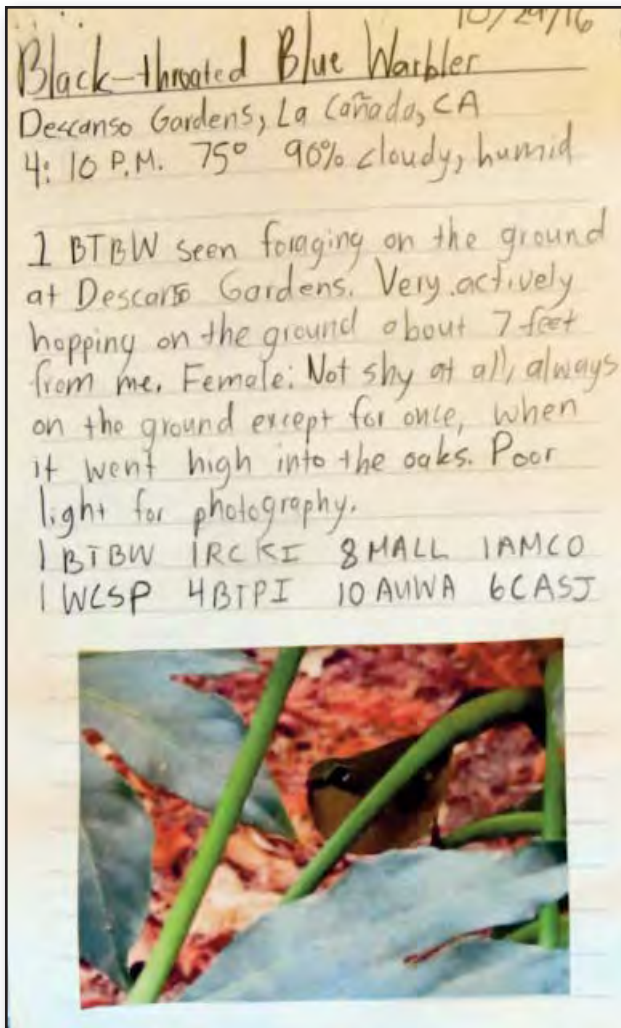 10/29/16
Black-throated Blue Warbler
Descanso Gardens, La Cañada, CA
4:10 P.M. 75° 90% cloudy, humid
1 BTBW seen foraging on the ground
at Descanso Gardens. Very actively
hopping on the ground about 7 feet
from me. Female. Not shy at all, always
on the ground except for once, when
it went high into the oaks. Poor
light for photography.
1 BTBW 1 RCKI 8 MALL 1 AMCO
1 WCSP 4 BTPI 10 AUWA 6 CASJ